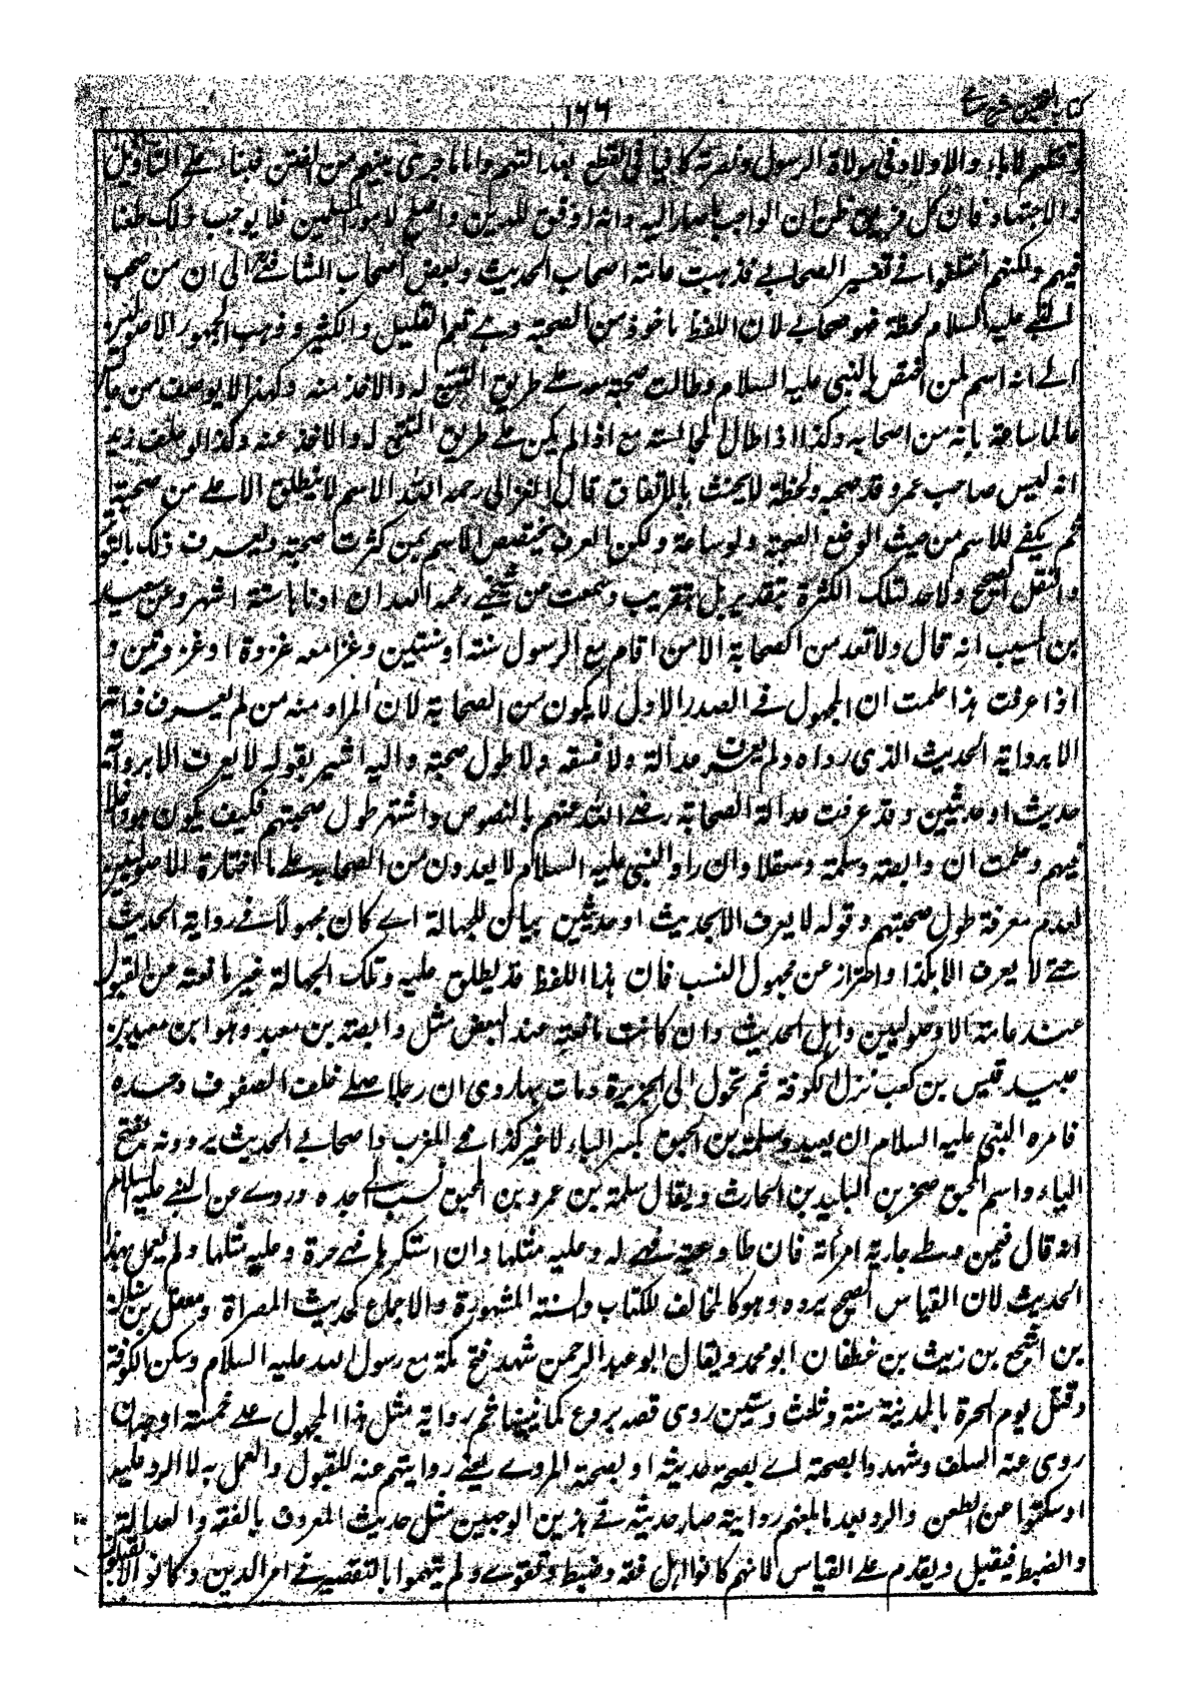 ١٦٦
وقتلهم الآباء والاولاد فى موالاة الرسول ونصرته كافيا فى القطع بعدالتهم واما ما جرى بينهم من الفتن فبناء على التأويل
والاجتهاد فان كل فريق ظن ان الواجب ما صار اليه وانه اوفق للدين واصلح لامور المسلمين فلا يوجب ذلك طعنا
فيهم ولكنهم اختلفوا فى تفسير الصحابى فذهبت عامة اصحاب الحديث وبعض اصحاب الشافعى الى ان من صحب
النبى عليه السلام لحظة فهو صحابى لان اللفظ ماخوذ من الصحبة وهى تعم القليل والكثير وذهب الجمهور الاصوليين
الى انه اسم لمن اختص بالنبى عليه السلام وطالت صحبته معه على طريق التتبع له والاخذ منه ولهذا لا يوصف من جالس
عالما ساعة بانه من اصحابه وكذا اذا طال المجالسة مع اذا لم يكن على طريق التتبع له والاخذ عنه وكذا لو حلف زيد
انه ليس صاحب عمرو وقد صحبه ولحظة لا يحنث بالاتفاق قال الغزالى رحمه الله الاسم لا ينطلق الا على من صحبه
ثم يكفى للاسم من حيث الوضع الصحبة ولو ساعة ولكن العرف يخصص الاسم بمن كثرت صحبته ويعرف ذلك بالتواتر
والنقل الصحيح ولا حد لتلك الكثرة بتقدير بل بتقريب وسمعت عن شيخى رحمه الله ان ادناها ستة اشهر وعن سعيد
بن المسيب انه قال ولا تعد من الصحابة الا من اقام مع الرسول سنة او سنتين وغزا معه غزوة او غزوتين و
اذا عرفت هذا علمت ان المجهول فى الصدر الاول لا يكون من الصحابة لان المراد منه من لم يعرف ذاته
الا برواية الحديث الذى رواه ولم يعرف عدالته ولا فسقه ولا طول صحبته واليه اشير بقوله لا يعرف الا برواية
حديث او حديثين وقد عرفت عدالة الصحابة رضى الله عنهم بالنصوص واشتهر طول صحبتهم فكيف يكون هو داخلا
فيهم وعلمت ان وابصة وسلمة ومعقلا وان راو النبى عليه السلام لا يعدون من الصحابة على ما اختاره الاصوليون
لعدم معرفة طول صحبتهم وقوله لا يعرف الا بحديث او حديثين بيان للجهالة اى كان مجهولا فى رواية الحديث
حتى لا يعرف الا بكذا واحتراز عن مجهول النسب فان هذا اللفظ قد يطلق عليه وتلك الجهالة غير مانعة من القبول
عند عامة الاصوليين واهل الحديث وان كانت مانعة عند البعض مثل وابصة بن معبد وهو ابن معبد بن
عبيد قيس بن كعب نزل الكوفة ثم تحول الى الجزيرة ومات بها روى ان رجلا صلى خلف الصفوف وحده
فامره النبى عليه السلام ان يعيد وسلمة بن المحبق بكسر الباء لا غير كذا فى المغرب واصحاب الحديث يروونه بفتح
الباء واسم المحبق صخر بن البليد بن الحارث ويقال سلمة بن عمرو بن المحبق نسب الى جده وروى عن النبى عليه السلام
انه قال فيمن وطى جارية امرأته فان طاوعته فهى له وعليه مثلها وان استكرهها فهى حرة وعليه مثلها ولم يعمل بهذا
الحديث لان القياس الصحيح يرده وهو كالمخالف للكتاب والسنة المشهورة والاجماع كحديث المصراة ومعقل بن سنان
بن اشجع بن ريث بن غطفان ابو محمد ويقال ابو عبد الرحمن شهد فتح مكة مع رسول الله عليه السلام وسكن الكوفة
وقتل يوم الحرة بالمدينة سنة وثلث وستين روى قصة بروع كما بينا ثم رواية مثل هذا المجهول على خمسة اوجه ان
روى عنه السلف وشهدوا بصحته اى بصحة حديثه او بصحة المروى يعنى روايتهم عنه للقبول والعمل به لا الرد عليه
او سكتوا عن الطعن والرد بعد ما بلغهم روايته صار حديثه فى هذين الوجهين مثل حديث المعروف بالفقه والعدالة
والضبط فيقبل ويقدم على القياس لانهم كانوا اهل فقه وضبط وتقوى ولم يتهموا بالتقصير فى امر الدين وكانوا لا يقبلون